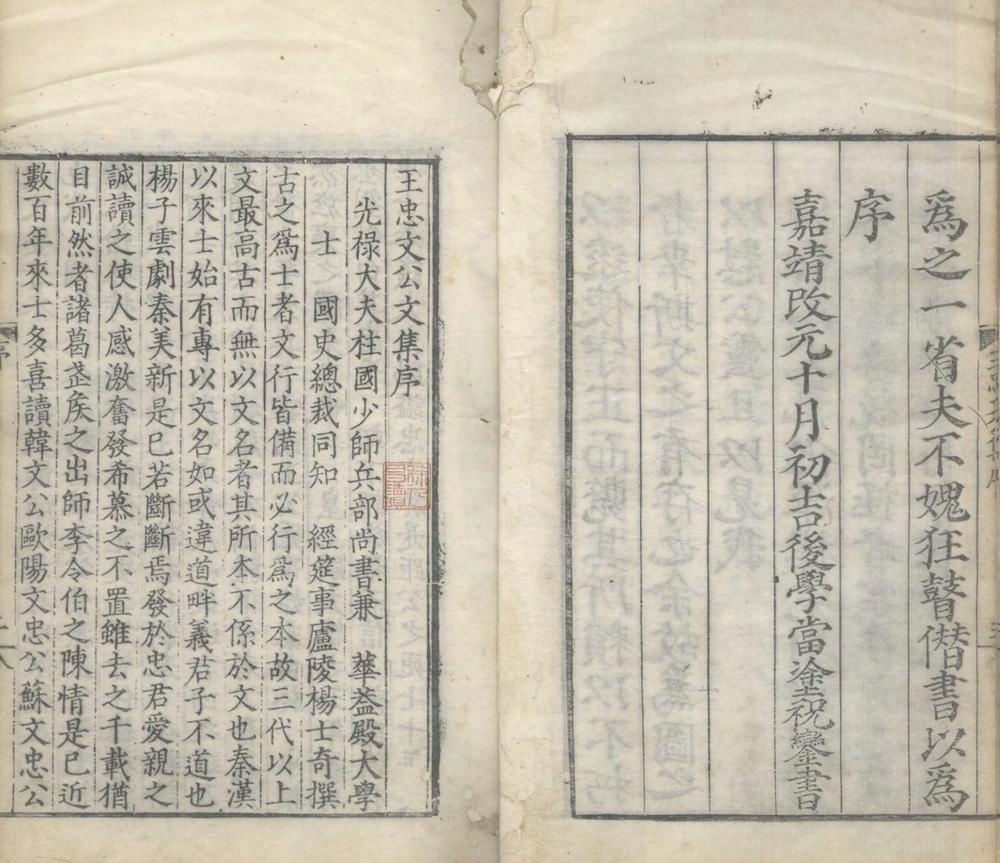 為之一省夫不媿狂瞽僣書以為
序
嘉靖改元十月初吉後學當塗祝鑾書
王忠文公文集序
光祿大夫柱國少師兵部尚書兼　華蓋殿大學
士　國史總裁同知　經筵事廬陵楊士奇撰
古之為士者文行皆備而必行為之本故三代以上
文最高古而無以文名者其所本不係於文也秦漢
以來士始有專以文名如或違道畔義君子不道也
楊子雲劇秦美新是已若斷斷焉發於忠君愛親之
誠讀之使人感激奮發希慕之不置雖去之千載猶
目前然者諸葛武矦之出師李令伯之陳情是已近
數百年來士多喜讀韓文公歐陽文忠公蘇文忠公
序